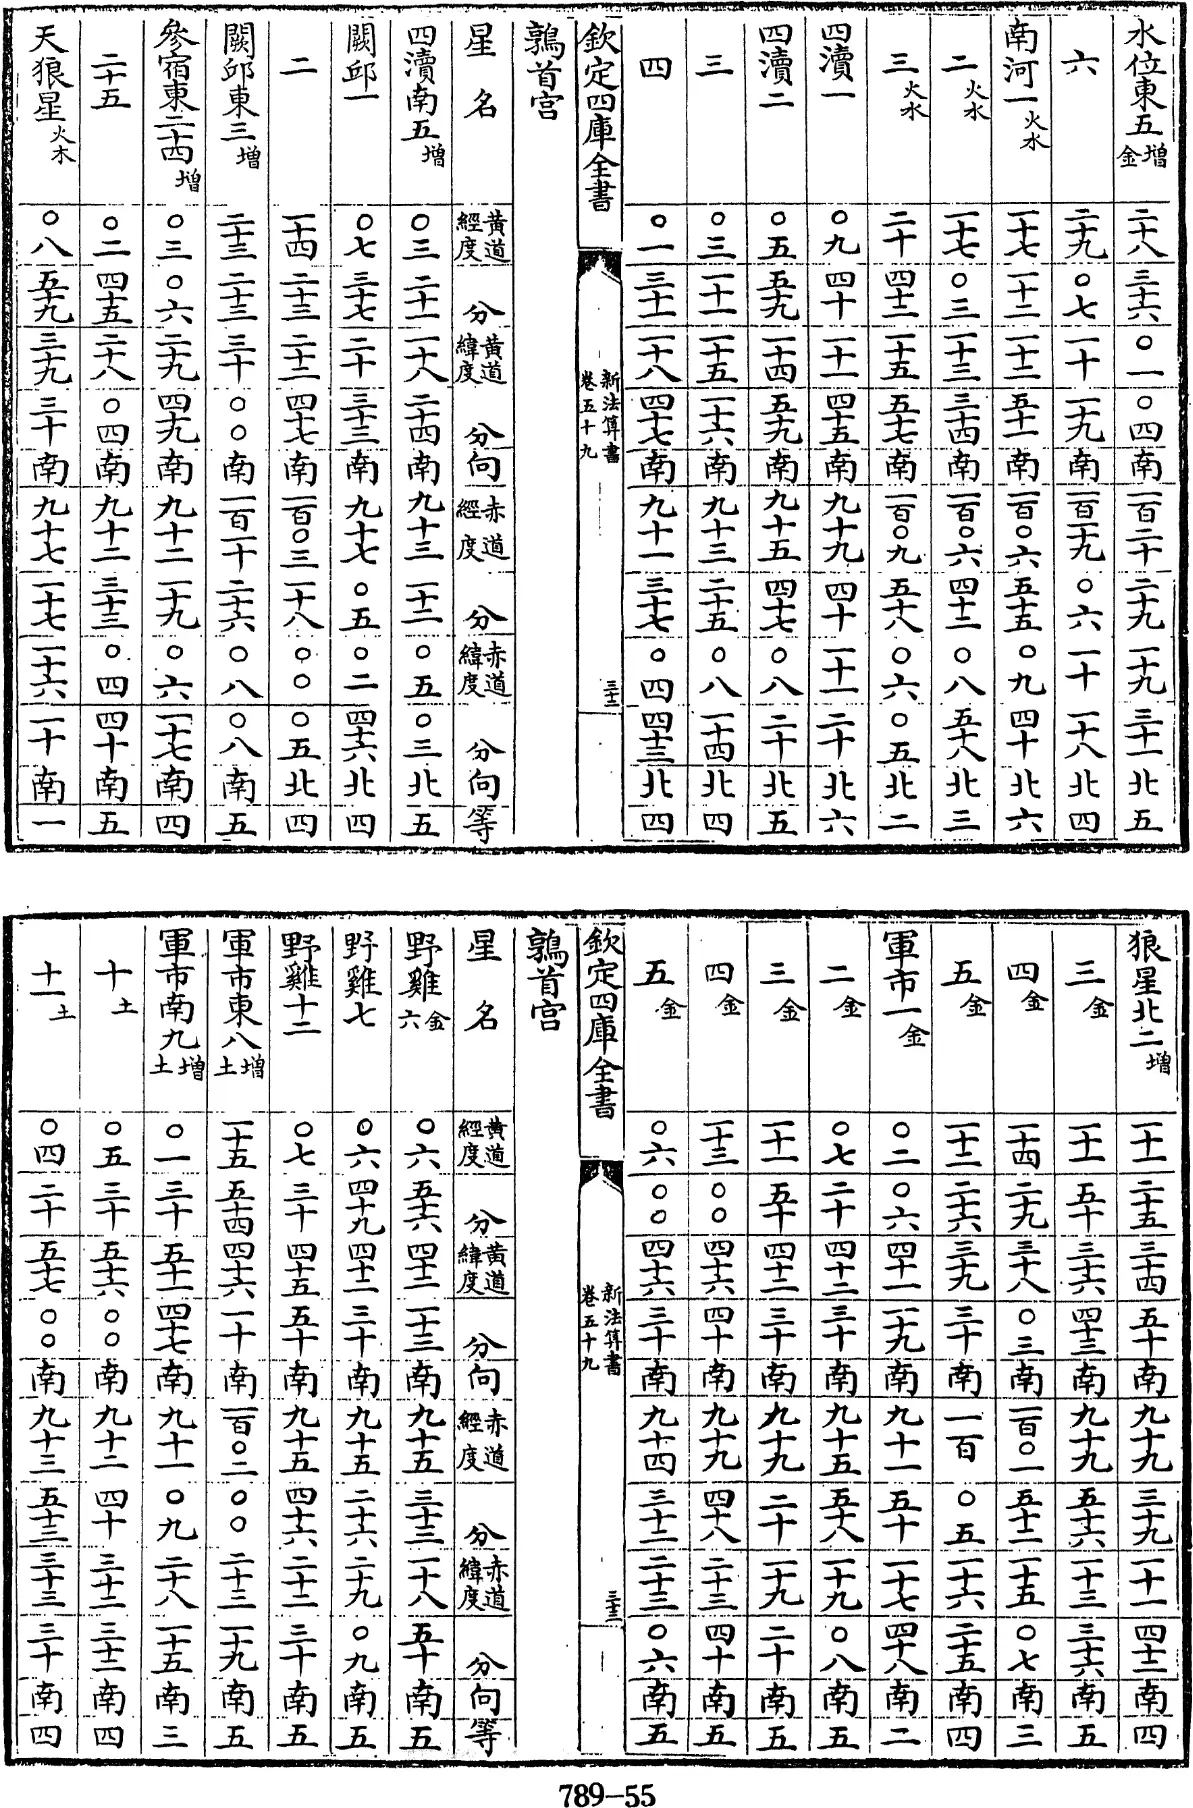 水位東五增金 二十八 三十六 〇一 〇四 南 一百二十 二十九 一十九 三十一 北 五
六 二十九 〇七 一十 一十九 南 一百一十九 〇六 一十 一十八 北 四
南河一火水 一十七 一十二 一十三 五十一 南 一百〇六 五十五 〇九 四十 北 六
二火水 一十七 〇三 一十三 三十四 南 一百〇六 四十二 〇八 五十八 北 三
三火水 二十 四十二 一十五 五十七 南 一百〇九 五十八 〇六 〇五 北 二
四瀆一 〇九 四十 一十一 四十五 南 九十九 四十 一十一 二十 北 六
四瀆二 〇五 五十九 一十四 五十九 南 九十五 四十七 〇八 二十 北 五
三 〇三 二十一 一十五 一十六 南 九十三 二十五 〇八 一十四 北 四
四 〇一 三十一 一十八 四十七 南 九十一 三十七 〇四 四十三 北 四
欽定四庫全書 新法算書 卷五十九 三十二
鶉首宮
星名 黃道經度 分 黃道緯度 分 向 赤道經度 分 赤道緯度 分 向 等
四瀆南五增 〇三 二十一 一十八 二十四 南 九十三 一十二 〇五 〇三 北 五
闕邱一 〇七 三十七 二十 三十三 南 九十七 〇五 〇二 四十六 北 四
二 一十四 二十三 二十二 四十七 南 一百〇三 一十八 〇〇 〇五 北 四
闕邱東三增 二十三 二十三 三十 〇〇 南 一百一十 二十六 〇八 〇八 南 五
參宿東二十四增 〇三 〇六 二十九 四十九 南 九十二 一十九 〇六 一十七 南 四
二十五 〇二 四十五 二十八 〇四 南 九十二 三十三 〇四 四十 南 五
天狼星火木 〇八 五十九 三十九 三十 南 九十七 一十七 一十六 一十 南 一
狼星北二增 一十一 二十五 三十四 五十 南 九十九 三十九 一十一 四十二 南 四
三金 一十一 五十 三十六 四十三 南 九十九 五十六 一十三 三十六 南 五
四金 一十四 二十九 三十八 〇三 南 一百〇一 五十二 一十五 〇七 南 三
五金 一十二 二十六 三十九 三十 南 一百 〇五 一十六 二十五 南 四
軍市一金 〇二 〇六 四十一 一十九 南 九十一 五十 一十七 四十八 南 二
二金 〇七 二十 四十二 三十 南 九十五 五十八 一十九 〇八 南 五
三金 一十一 五十 四十二 三十 南 九十九 二十 一十九 二十 南 五
四金 一十三 〇〇 四十六 四十 南 九十九 四十八 二十三 四十 南 五
五金 〇六 〇〇 四十六 三十 南 九十四 三十二 二十三 〇六 南 五
欽定四庫全書 新法算書 卷五十九 三十三
鶉首宮
星名 黃道經度 分 黃道緯度 分 向 赤道經度 分 赤道緯度 分 向 等
野雞六金 〇六 五十六 四十二 一十三 南 九十五 三十三 一十八 五十 南 五
野雞七 〇六 四十九 四十二 三十 南 九十五 二十六 二十九 〇九 南 五
野雞十二 〇七 三十 四十五 五十 南 九十五 四十六 二十二 三十 南 五
軍市東八增土 一十五 五十四 四十六 一十 南 一百〇二 〇〇 二十三 一十九 南 五
軍市南九增土 〇一 三十 五十一 四十七 南 九十一 〇九 二十八 一十五 南 三
十土 〇五 三十 五十六 〇〇 南 九十二 四十 三十二 三十二 南 四
十一土 〇四 二十 五十七 〇〇 南 九十三 五十三 三十三 三十 南 四
789–55